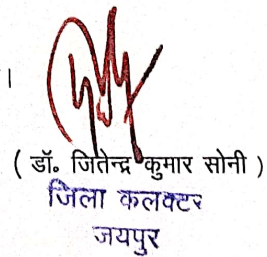 ।
( डॉ. जितेन्द्र कुमार सोनी )
जिला कलक्टर
जयपुर